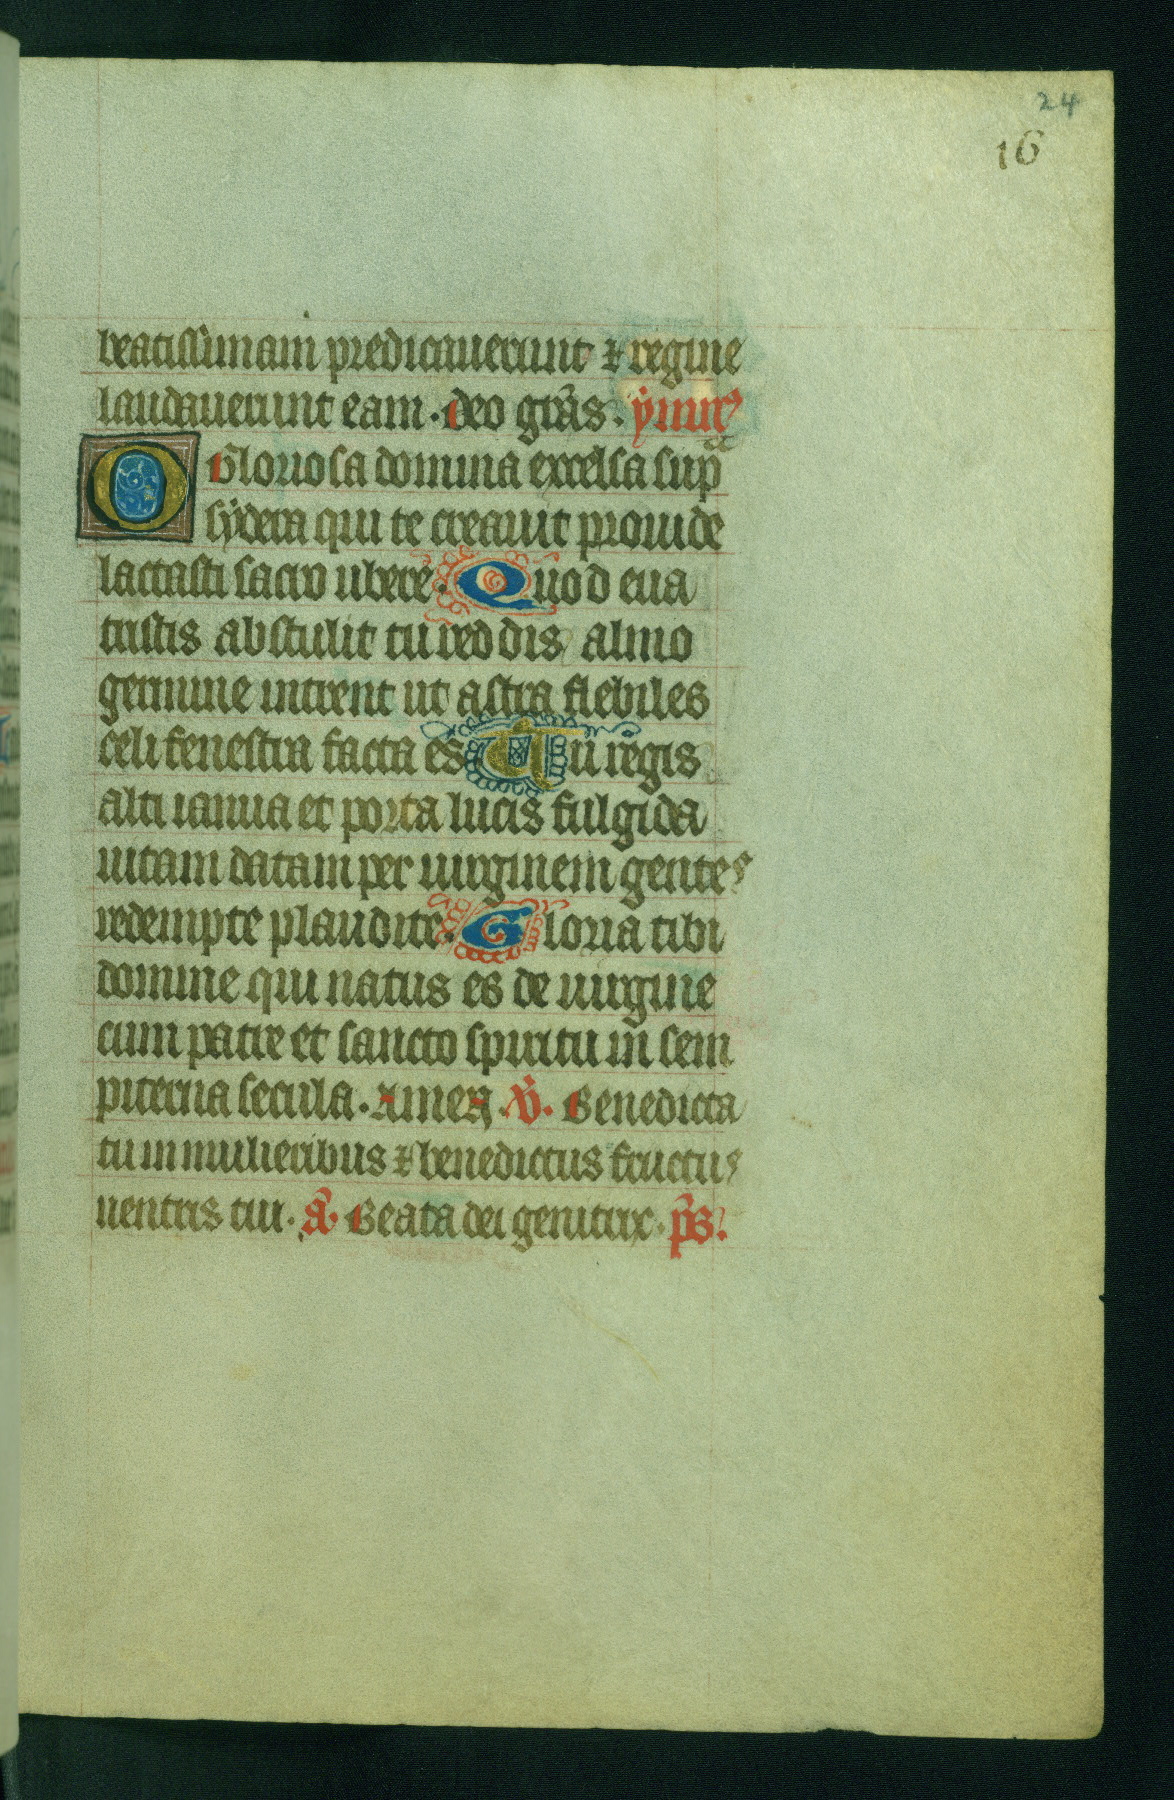 24
16
beatissimam predicauerunt ⁊ regine
laudauerunt eam. deo gr̄as. ẏmnꝰ
O Gloriosa domina excelsa sup̄ª
sẏdera qui te creauit prouide
lactasti sacro ubere. Quod eua
tristis abstulit tu reddis almo
germine intrent ut astra flebiles
celi fenestra facta es Tu regis
alti ianua et porta lucis fulgida
uitam datam per uirginem gentes
redempte plaudite. Gloria tibi
domine qui natus es de uirgine
cum patre et sancto spiritu in sem
piterna secula. Amen. v̄. Benedicta
tu in mulieribus ⁊ benedictus fructus
uentris tui. ā. Beata dei genitrix. p̄s.